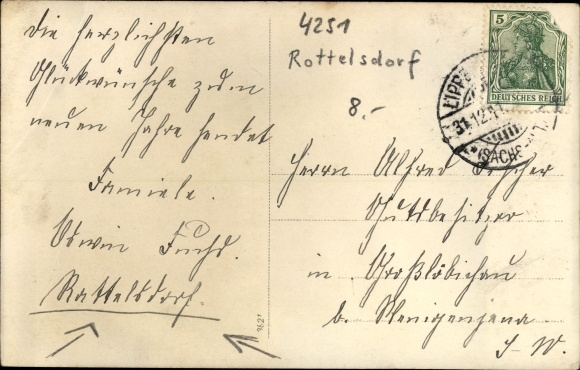 Die herzlichsten
Glückwünsche zum
neuen Jahre sendet
Familie.
Edwin Fuchs.
Rattelsdorf.
4251
Rottelsdorf
8.-
5
DEUTSCHES REICH
LIPPE
31.12.11
(SACHS.
Herrn Alfred
Gutsbesitzer
in Großlöbichau
b. Wenigenjena
S-W.
3627